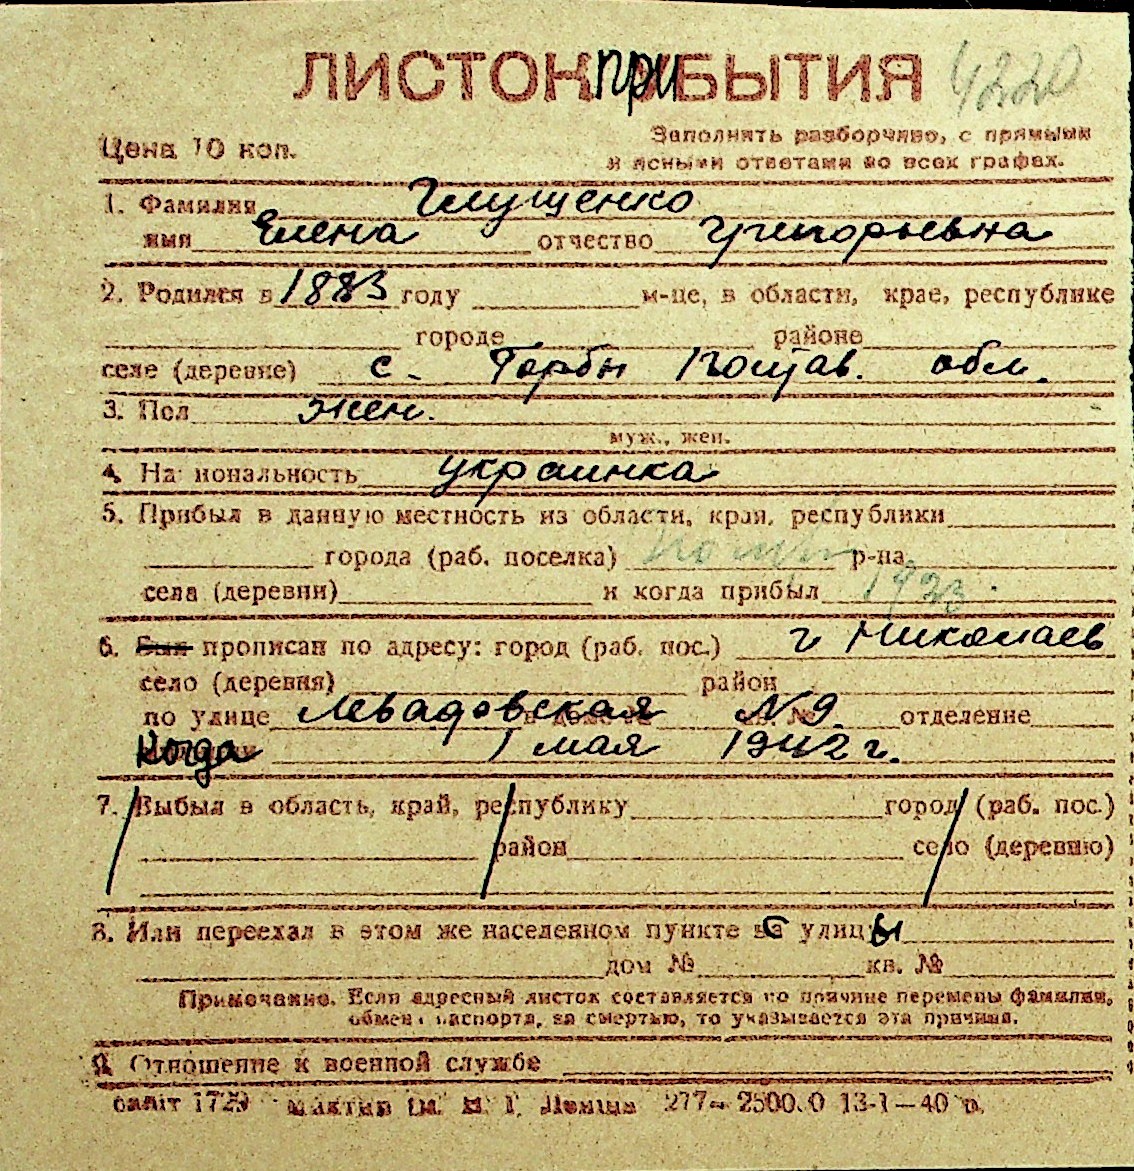 ЛИСТОК ПРИБЫТИЯ 4220
Цена 10 коп.
Заполнять разборчиво, с прямыми
и ясными ответами во всех графах.
1. Фамилия Глущенко
имя Елена отчество Григорьевна
2. Родился в 1883 году м-це, в области, крае, республике
городе районе
селе (деревне) с. Горбы Полтав. обл.
3. Пол жен.
муж., жен.
4. Национальность украинка
5. Прибыл в данную местность из области, края, республики
города (раб. поселка) р-на
села (деревни) и когда прибыл 1923.
6. Был прописан по адресу: город (раб. пос.) г Николаев
село (деревня) район
по улице Левадовская №9. отделение
Когда 1 мая 1942 г.
7. Выбыл в область, край, республику город (раб. пос.)
район село (деревню)
8. Или переехал в этом же населенном пункте с улицы
дом № кв. №
Примечание. Если адресный листок составляется по причине перемены фамилии,
обмена паспорта, за смертью, то указывается эта причина.
9. Отношение к военной службе
1729 277— 13-1—40